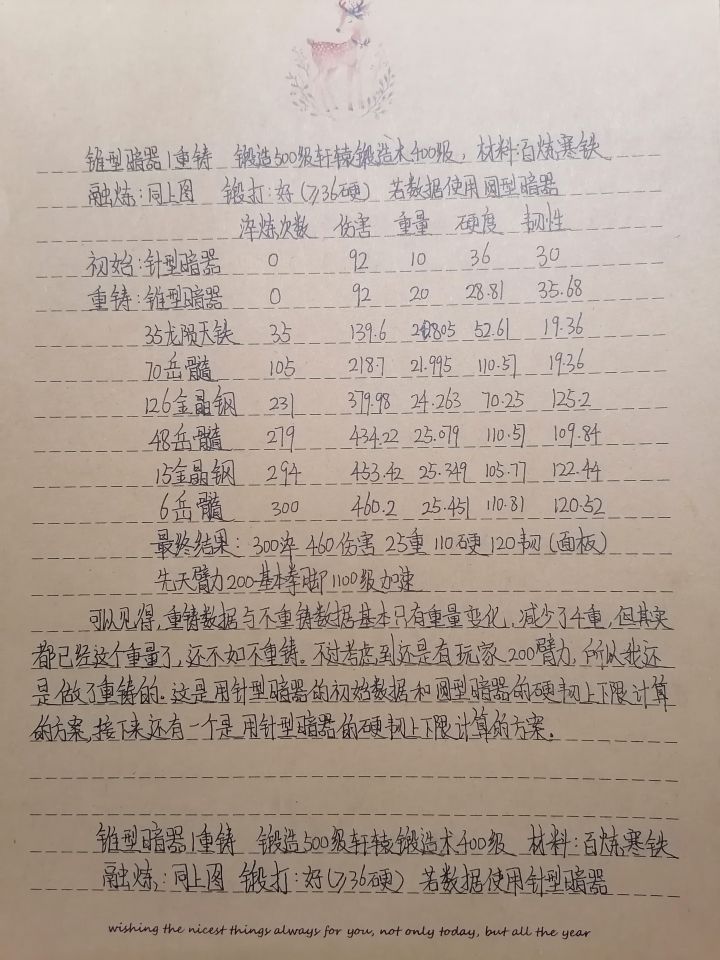 锥型暗器1重铸 锻造500级轩辕锻造术400级，材料:百炼寒铁
融炼:同上图 锻打:好(≥36硬) 若数据使用圆型暗器
淬炼次数 伤害 重量 硬度 韧性
初始:针型暗器 0 92 10 36 30
重铸:锥型暗器 0 92 20 28.81 35.68
35龙陨天铁 35 139.6 20.805 52.61 19.36
70岳髓 105 218.7 21.995 110.57 19.36
126金晶钢 231 379.98 24.263 70.25 125.2
48岳髓 279 434.22 25.079 110.57 109.84
15金晶钢 294 453.42 25.349 105.77 122.44
6岳髓 300 460.2 25.451 110.81 120.52
最终结果：300淬 460伤害 25重 110硬 120韧(面板)
先天臂力200-基本拳脚1100级加速
可以见得,重铸数据与不重铸数据基本只有重量变化,减少了4重,但其实
都已经这个重量了,还不如不重铸.不过考虑到还是有玩家200臂力,所以我还
是做了重铸的.这是用针型暗器的初始数据和圆型暗器的硬韧上下限计算
的方案,接下来还有一个是用针型暗器的硬韧上下限计算的方案.
锥型暗器1重铸 锻造500级轩辕锻造术400级 材料:百炼寒铁
融炼:同上图 锻打:好(≥36硬) 若数据使用针型暗器
wishing the nicest things always for you, not only today, but all the year